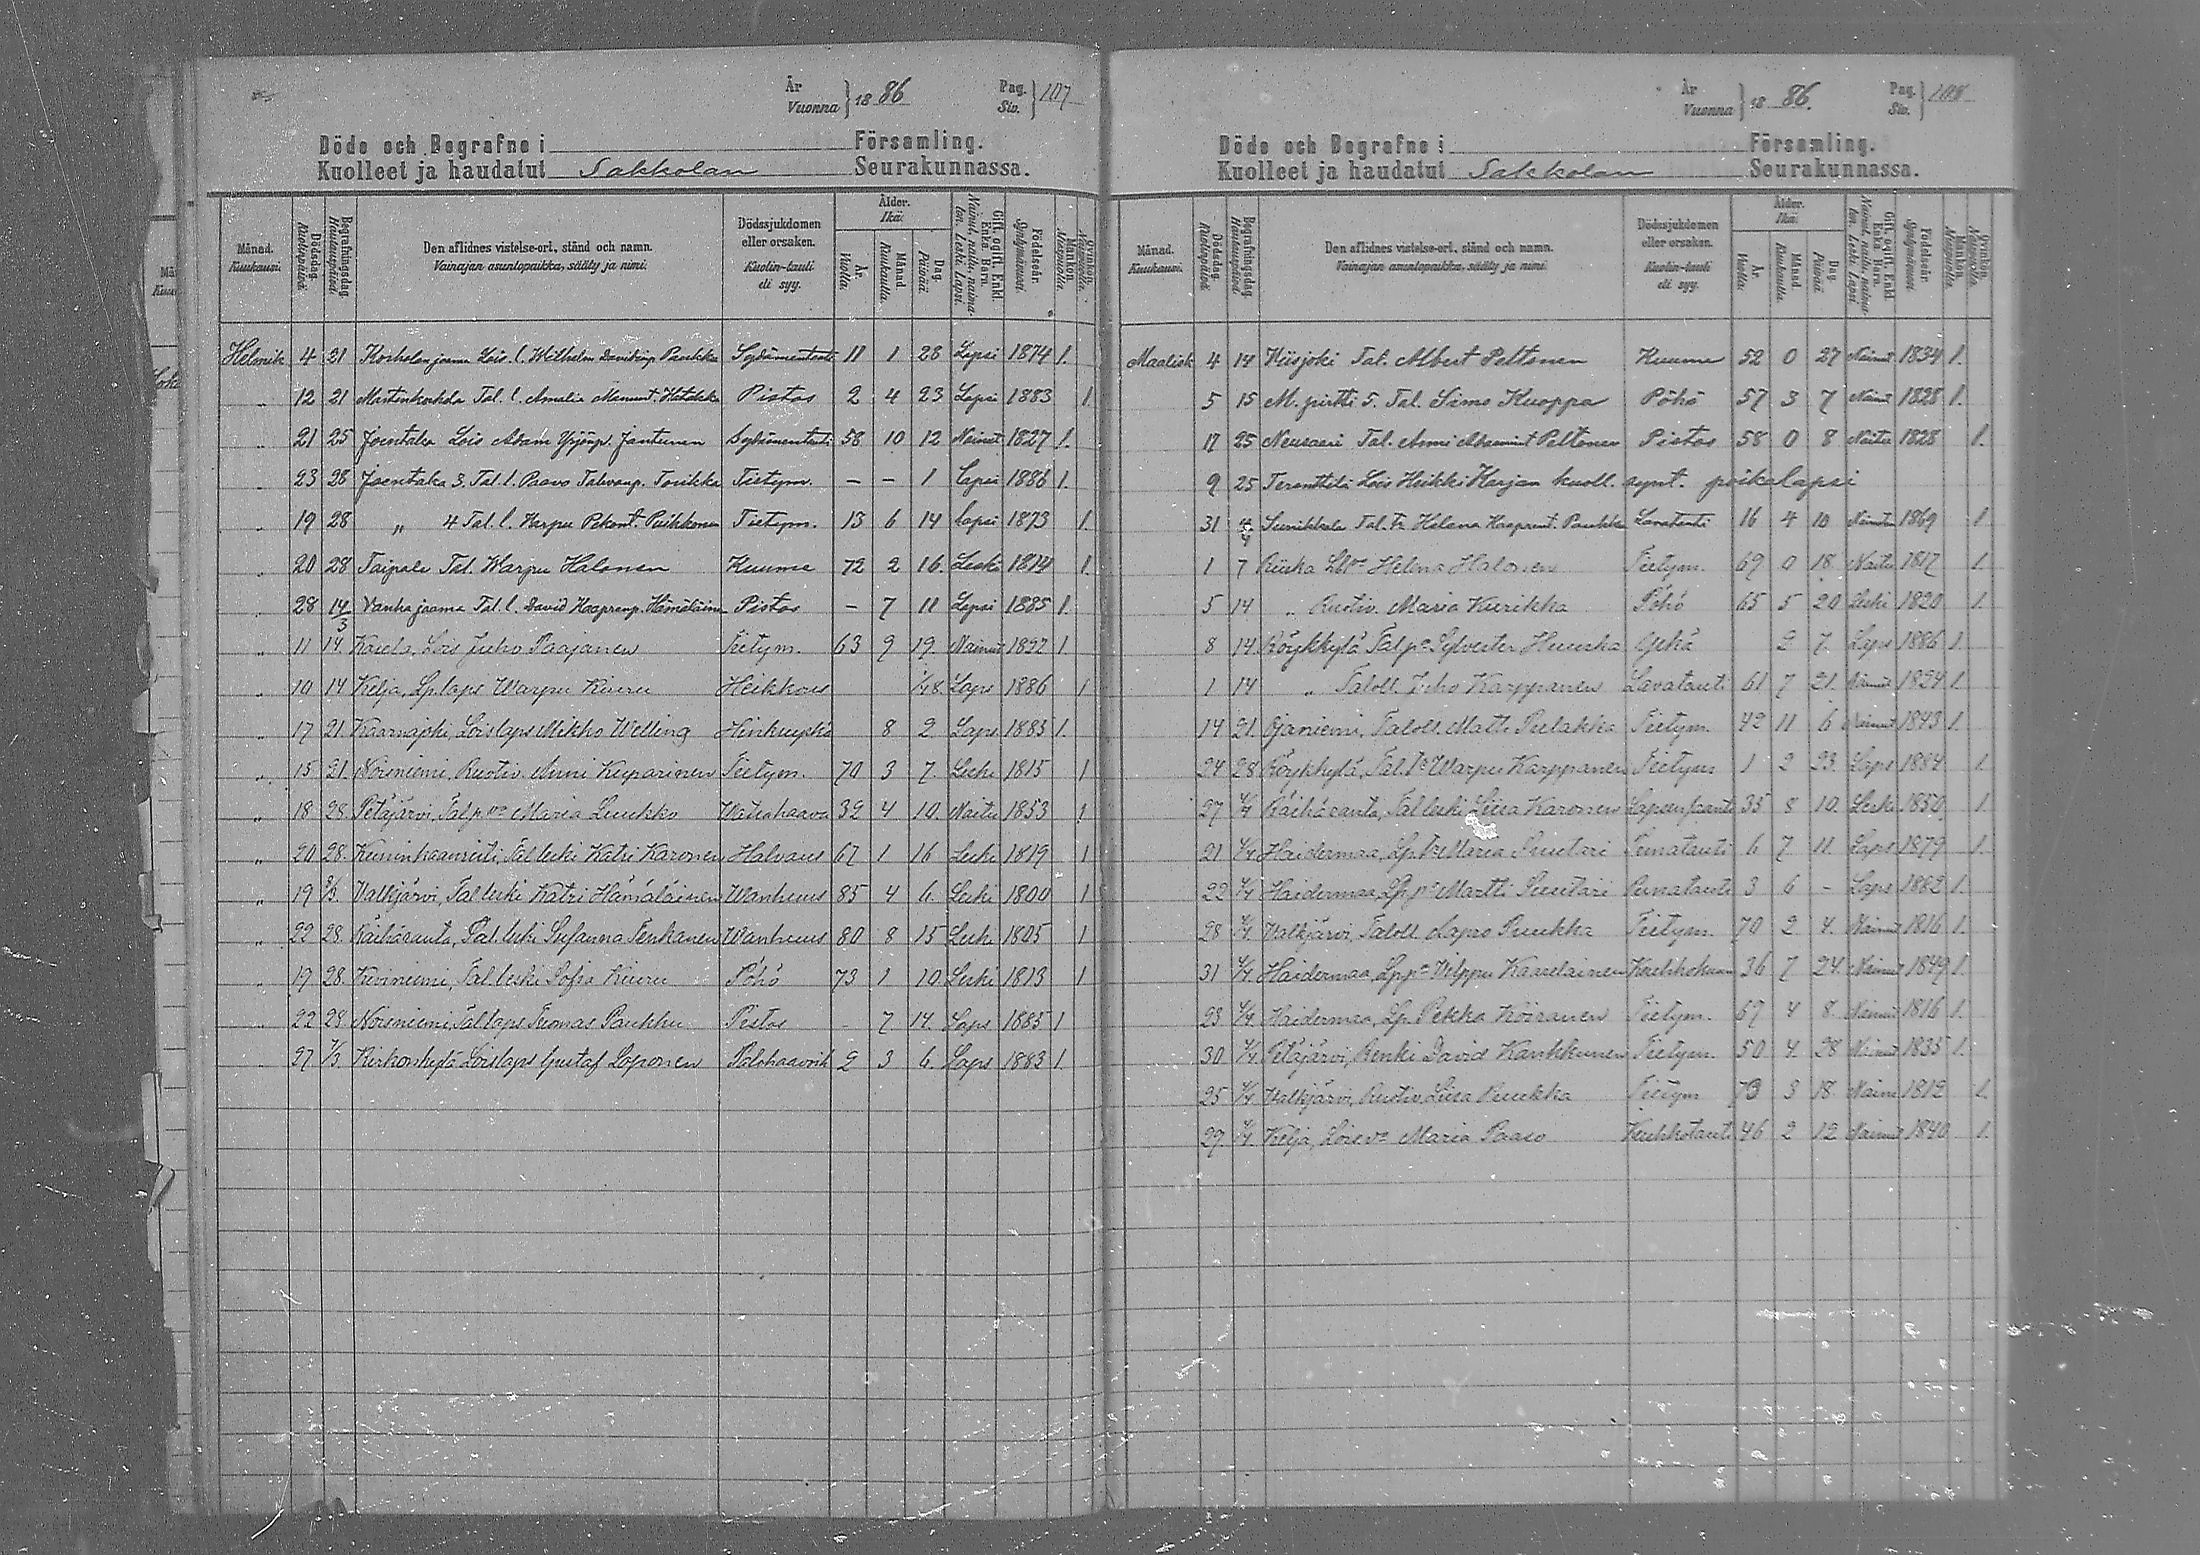 År Vuonna } 1886 Pag. Siv. } 107
Döde och Begrafne i Församling.
Kuolleet ja haudatut Sakkolan Seurakunnassa.
Månad. Kuukausi.
Dödsdag. Kuolinpäivä.
Begrafningsdag. Hautauspäivä.
Den aflidnes vistelse-ort, stånd och namn. Vainajan asuntopaikka, sääty ja nimi.
Dödssjukdomen eller orsaken. Kuolin-tauti eli syy.
Ålder. Ikä.
År. Vuotta.
Månad. Kuukautta.
Dag. Päivää.
Gift, ogift, Enkl. Enka, Barn. Nainut, naitu, naimaton, Leski, Lapsi.
Födelseår. Syntymävuosi.
Mankön. Miespuolia.
Qvinkön. Naispuolia.
Helmik 4 21 Wilhelm Paukku 11 1 28 Lapsi 1874 1.
" 12 21 Tal. l. Amalia Hatakka Pistos 2 4 23 Lapsi 1883 1.
" 21 25 Joentaka Lois Adam Yrjönp. Jantunen Sydämentauti 58 10 12 Nainut 1827 1.
" 23 28 Joentaka 3. Tal. l. Paavo Toukka Tietym. – – 1 Lapsi 1886 1.
" 19 28 " 4 Tal. l. Warpu Pekant. Puikkonen Tietym. 13 6 14 Lapsi 1873 1.
" 20 28 Taipale Tal. Warpu Halonen Kuume 72 2 16. Leski 1814 1.
" 28 14/3 Vanhajaama Tal. l. David Hämäläinen Pistos – 7 11 Lapsi 1885 1.
" 11 14. Lois Juho Paajanen Tietym. 63 9 19. Nainut 1822 1.
" 10 14 Kelja, Lp. laps Warpu Kiuru Heikkous Laps 1886 1
" 17 21. Kaarnajoki, Loislaps Mikko Welling Hinkuyskä 8 2. Laps 1885 1.
" 15 21. Noisniemi, Ruotiv. Anni Kuparinen Tietym. 70 3 7. Leski 1815 1
" 18 28. Petäjärvi, Maria Luukko 32 4 10. Naitu 1853 1
" 20 28. Tal leski Katri Karonen Halvaus 67 1 16 Leski 1819 1
" 19 Valkjärvi, Tal leski Katri Hämäläinen Wanhuus 85 4 6. Leski 1800 1
" 22 28. Räihäranta, Tal. leski Susanna Tenkanen Wanhuus 80 8 15 Leski 1805 1
" 19 28. Kiviniemi, Tal. leski Sofia Kiuru Pöhö 73 1 10. Leski 1813 1
" 22 28 Noisniemi, Tal laps Tuomas Paukku Pistos – 7 14. Laps 1885 1
" 27 7/3. Kirkonkylä Loislaps Gustaf Loponen Palohaavoit 2 3 6. Laps 1883 1.
År Vuonna } 1886. Pag. Siv. } 108
Döde och Begrafne i Församling.
Kuolleet ja haudatut Sakkolan Seurakunnassa.
Månad. Kuukausi.
Dödsdag. Kuolinpäivä.
Begrafningsdag. Hautauspäivä.
Den aflidnes vistelse-ort, stånd och namn. Vainajan asuntopaikka, sääty ja nimi.
Dödssjukdomen eller orsaken. Kuolin-tauti eli syy.
Ålder. Ikä.
År. Vuotta.
Månad. Kuukautta.
Dag. Päivää.
Gift, ogift, Enkl. Enka, Barn. Nainut, naitu, naimaton, Leski, Lapsi.
Födelseår. Syntymävuosi.
Mankön. Miespuolia.
Qvinkön. Naispuolia.
Maalisk 4 14 Tal. Albert Peltonen Kuume 52 0 27 Nainut 1834 1.
5 15 M. pirtti 5. Tal. Simo Kuoppa Pöhö 57 3 7 Nainut 1828 1.
17 25 Neusaari Tal. Anni Peltonen Pistos 58 0 8 Naitu 1828 1.
9 25 Terenttilä Lois Heikki Karjan kuoll. synt. poikalapsi
31 4/4 Sunikkala Tal. Helena Paukku Lavatauti 16 4 10 1869 1.
1 7 Riiska Helena Halonen Tietym. 69 0 18. Naitu 1817 1.
5 14 " Ruotiv. Maria Kurikka Pöhö 65 5 20 Leski 1820 1.
8 14. Röykkylä Tal pa Sylvester Huuska Yskä 2 7. Laps 1886 1.
1 14 " Taloll. Juho Karppanen Lavatauti 61 7 21. Nainut 1824 1.
14 21. Ojaniemi, Taloll. Matti Pulakka Tietym. 42 11 6 Nainut 1843 1.
24 28 Röykkylä, Tal. Warpu Karppanen Tietym 1 2 23. Laps 1884 1.
27 4/4 Räihäranta, Tal leski Liisa Karonen 35 8 10. Leski 1850 1.
21 4/4 Haidermaa, Maria Suutari 6 7 11. Laps 1879 1.
22 4/4 Haidermaa, Martti Suutari 3 6 – Laps 1882 1.
28 4/4. Valkjärvi, Taloll Puukka Tietym. 70 2 4. Nainut 1816 1.
31 4/4. Haidermaa, Wilppu 36 7 24. Nainut 1849 1.
23 4/4. Haidermaa, Lp. Pekka Koiranen Tietym. 67 4 8. Nainut 1816 1.
30 4/4. Petäjärvi, Renki David Kankkunen Tietym. 50 4 28 Nainut 1835 1.
25 4/4 Valkjärvi, Ruotiv. Liisa Puukka Tietym 73 3 18. 1812 1.
27. 4/4. Kelja, Maria Paaso Keuhkotauti 46 2 12 1840 1.